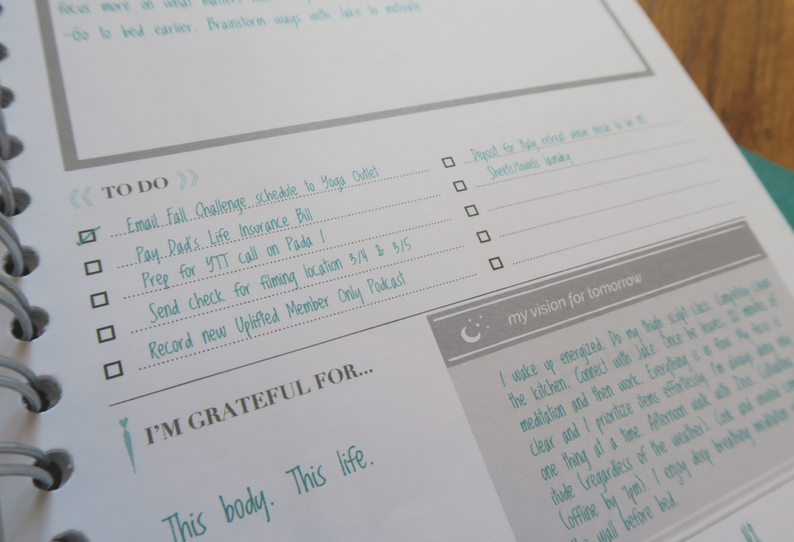 focus more on what matters
-Go to bed earlier. Brainstorm ways with Jake to motivate.
TO DO
Email Fall Challenge schedule to Yoga Outlet
Pay Dad's Life Insurance Bill
Prep for YTT call on Pada 1
Send check for filming location 3/4 & 3/5
Record new Uplifted Member Only Podcast
Deposit for Italy retreat venue needs to be
Sheets/towels laundry
I'M GRATEFUL FOR...
This body. This life.
my vision for tomorrow
I wake up energized. Do my tough sculpt class. Completely clean
the kitchen. Connect with Jake. Once he leaves, 20 minutes of
meditation and then work. Everything is in flow. My focus is
clear and I prioritize items effortlessly. I'm always doing
one thing at a time. Afternoon walk with Zoe.
itude (regardless of the weather). Cook and
(offline by 7pm). I enjoy deep breathing meditation
the wall before bed.